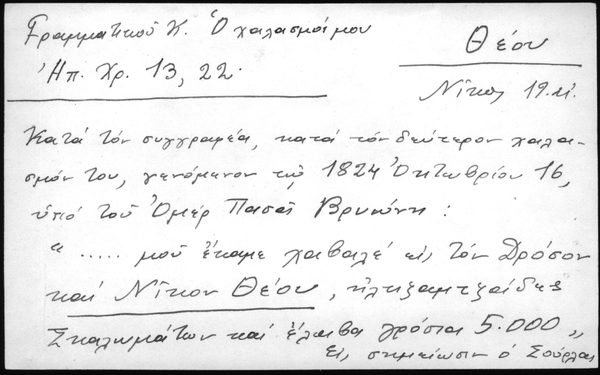 Γραμματικοῦ Κ. Ὁ χαλασμός μου
Θέου
Ἠπ. Χρ. 13, 22.
Νῖκος 19 αἰ.
Κατά τόν συγγραφέα, κατά τόν δεύτερον χαλα-
σμόν του, γενόμενον τῇ 1824 Ὀκτωβρίου 16,
ὑπό τοῦ Ὀμέρ Πασᾶ Βρυώνη:
"..... μοῦ ἔκαμε χαβαλέ εἰς τόν Δρόσον
καί Νῖκον Θέου,
Σκαλωμάτων καί ἔλαβα γρόσια 5.000"
εἰς σημείωσιν ὁ Σούρλας